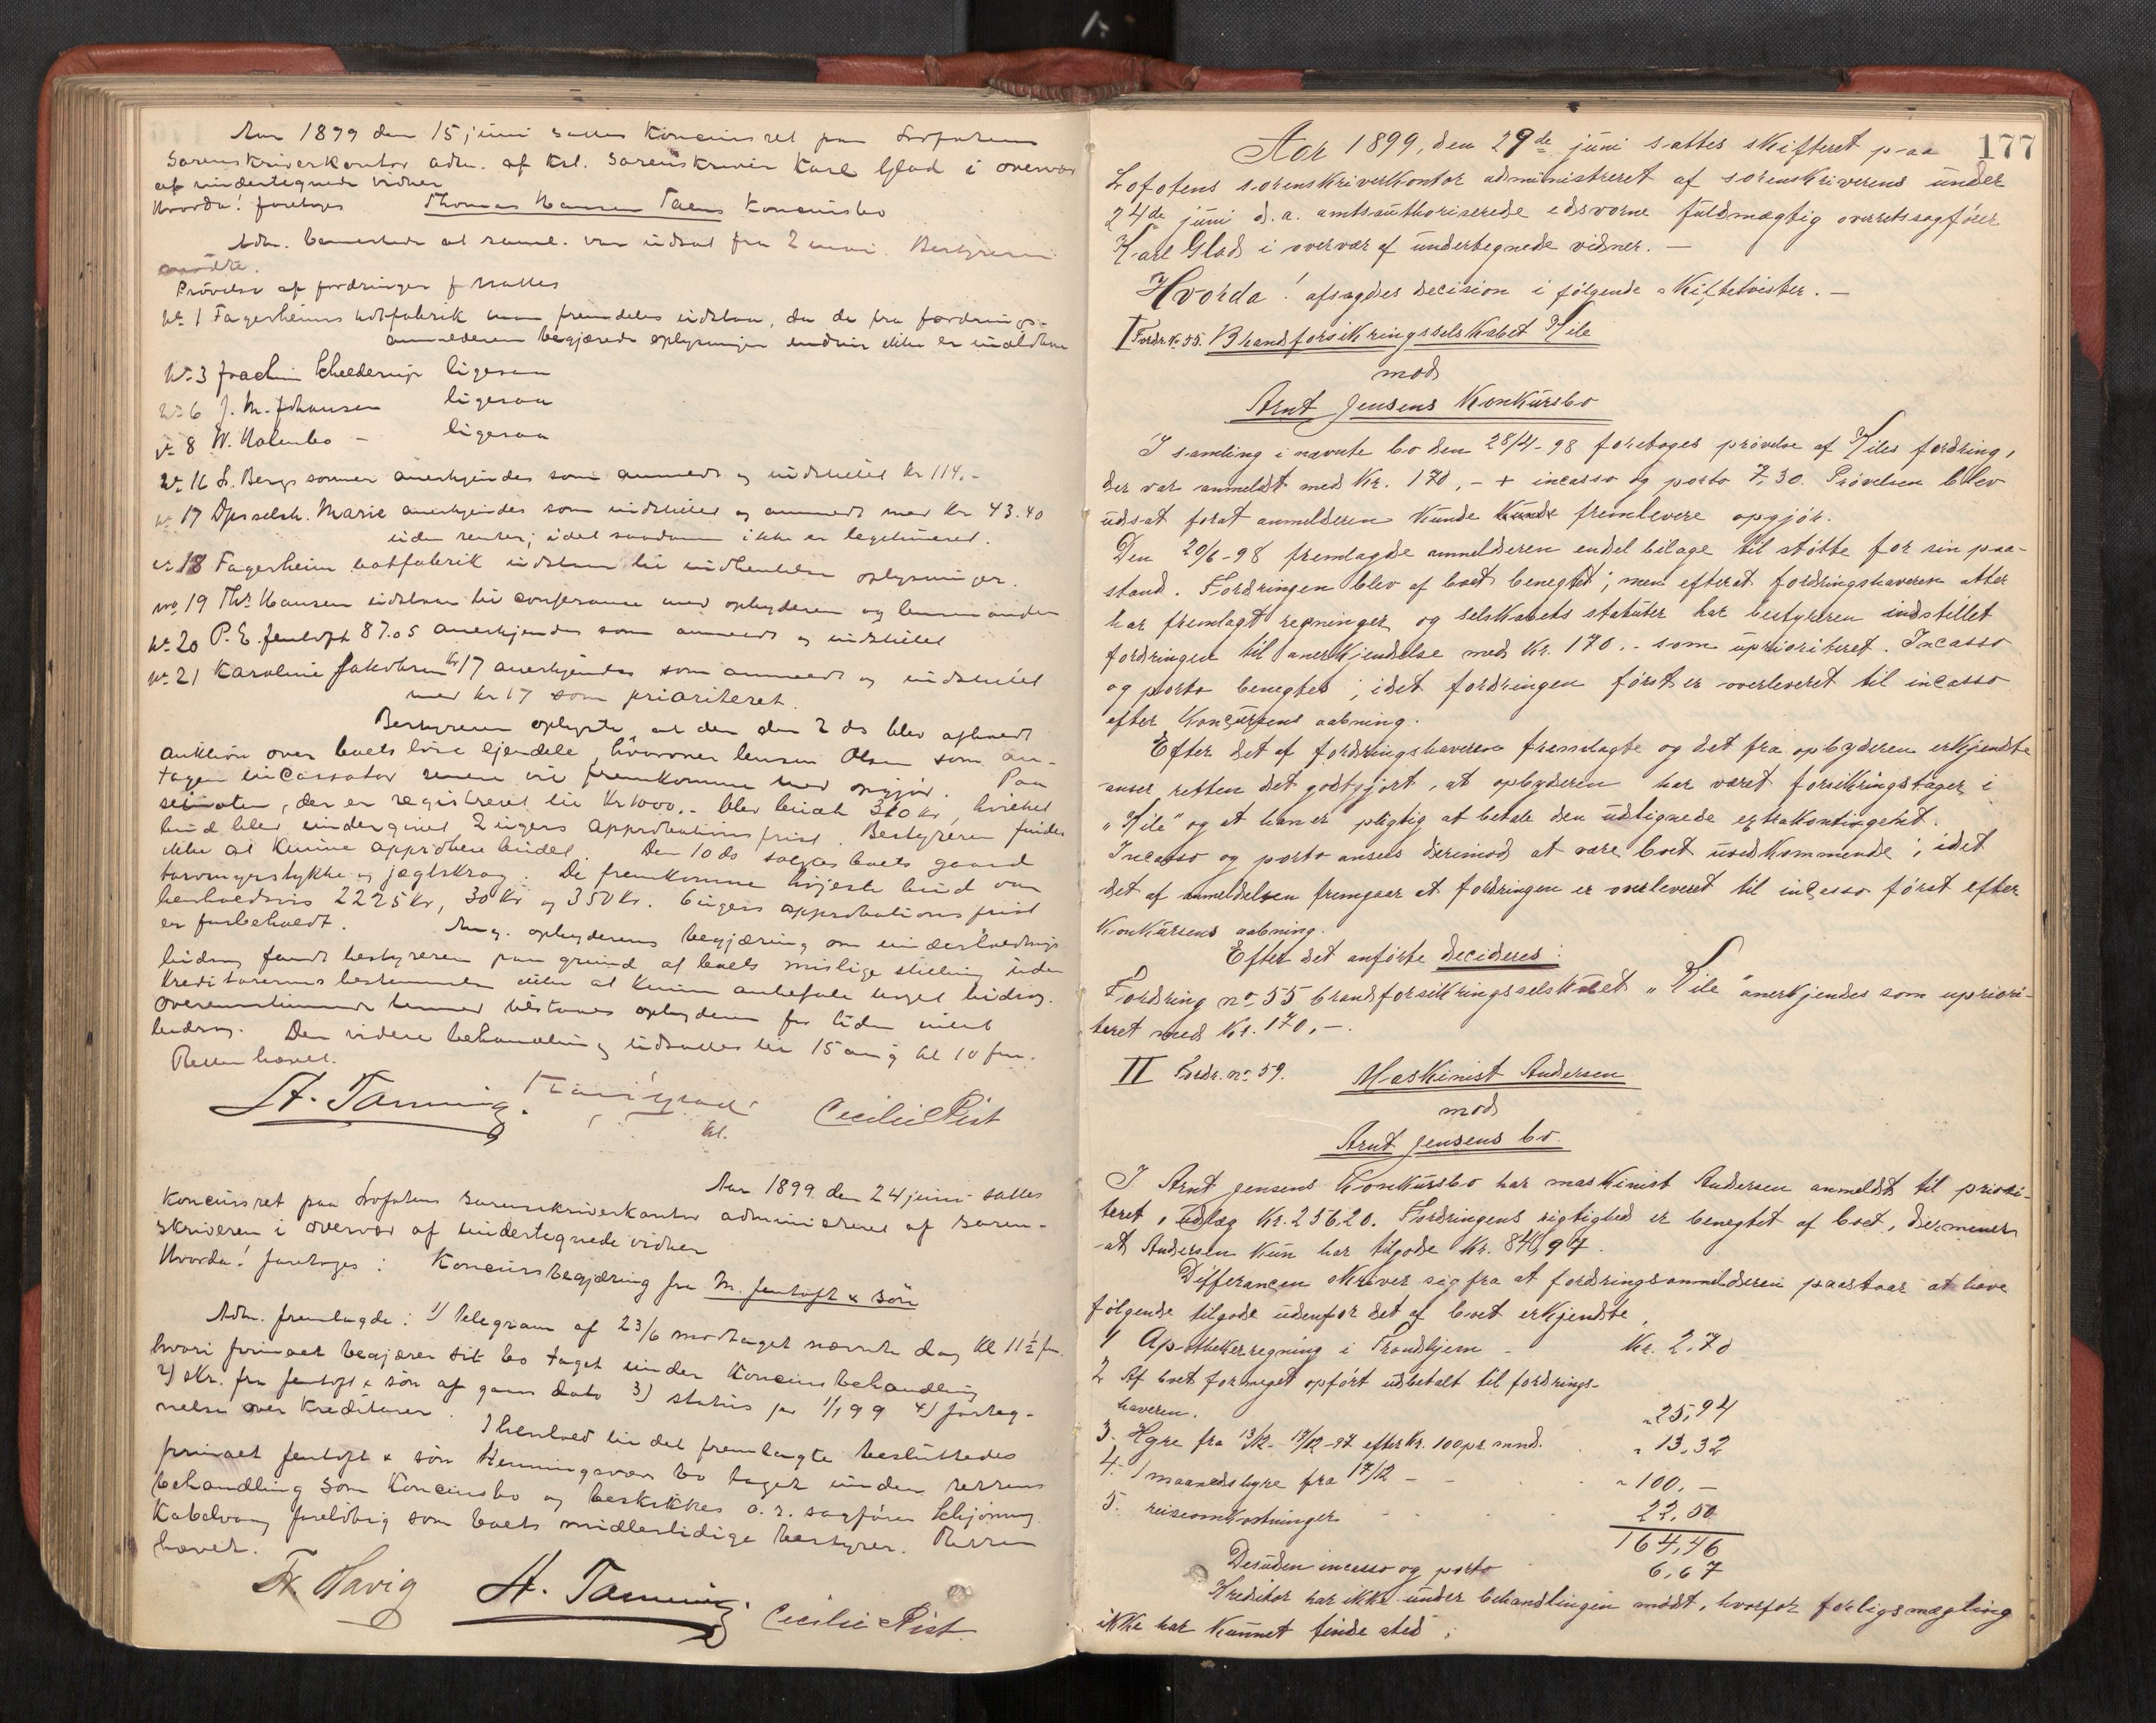 Aar 1899 den 15 juni sattes Koncursret paa Lofotens
Sorenskriverkontor adm. af Kst. Sorenskriver Karl Glad i overvær
af undertegnede vidner
Hvorda! foretoges Thomas Hansen Koncursbo
Adm. bemerkede at saml. var udsat fra 2 mai. Bestyreren
mødte.
Prøvelse af fordringer fortsattes
No 1 Fagerheims notfabrik maa fremdeles udstaa, da de fra fordrings-
anmelderen begjærede oplysninger endnu ikke er
No 3 Joachim Schelderup ligesaa
No 6 J. M. Johansen ligesaa
No 8 W. Holmbo - ligesaa
No 16 L. Bergs sønner anerkjendes som anmeldt og indstillet kr 114.-
No 17 Dpsselsk. Marie anerkjendes som indstillet og anmeldt med Kr 43.40
uden renter; idet saadanne ikke er legitimeret.
No 18 Fagerheim notfabrik udstaar til indhentelse oplysninger.
No 19 Ths Hansen udstaar til conferance med opbyderen og lensmanden
No 20 P. E. Jentoft 87.05 anerkjendes som anmeldt og indstillet
No 21 Karoline Jakobsen Kr 17 anerkjendes som anmeldt og indstillet
med kr 17 som prioriteret.
Bestyreren oplyste, at der den 2 ds blev afholdt
auktion over boets løse ejendele, hvorover lensm Olsen som an-
tagen incassator senere vil fremkomme med opgjør. Paa
, der er registreret til Kr 1000.- blev budt 310 Kr, hvilket
bud blev undergivet 2 ugers approbationsfrist. Bestyreren finder
ikke at kunne approbere budet. Den 10 ds solgtes boets gaard
og jægtskrog. De fremkomne højeste bud var
henholdsvis 2225 Kr, 30 Kr og 350 Kr. 6 ugers approbationsfrist
er forbeholdt. Ang. opbyderens begjæring om underholdnings
bidrag fandt bestyreren paa grund af boets mislige stilling uden
Kreditorernes bestemmelse ikke at kunne anbefale noget bidrag.
Overensstemmende hermed tilstaaes opbyderen for tiden intet
bidrag. Den videre behandling udsattes til 15 aug kl 10 fm.
Retten hævet.
H. Tanning. Karl Glad Cecilie Rist
kst.
Aar 1899 den 24 juni sattes
Koncursret paa Lofotens Sorenskriverkontor administreret af Soren-
skriveren i overvær af undertegnede vidner
Hvorda! foretoges: Koncursbegjæring fra M. Jentoft & søn
Adm. fremlagde: 1) Telegram af 23/6 modtaget nævnte dag Kl 11½ fm.
hvori firmaet begjærer sit bo taget under Koncursbehandling
2) skr. fra Jentoft & søn af gaars dato 3) status pr 1/1 99 4) forteg-
nelse over Kreditorer. I henhold til det fremlagte besluttedes
firmaet Jentoft & søn Henningsvær bo taget under rettens
behandling som Koncursbo og beskikkes o.r. sagfører Schjøning
Kabelvaag foreløbig som boets midlertidige bestyrer. Retten
hævet.
Fr. Havig H. Tanning. Cecilie Rist.
177
Aar 1899, den 29de juni sattes skifteret paa
Lofotens sorenskriverkontor administreret af sorenskriverens under
24de juni d.a. amtsauthoriserede edsvorne fuldmægtig overretssagfører
Karl Glad i overvær af undertegnede vidner.—
Hvorda! afsagdes decision i følgende skiftetvister.—
I Fordr. No 55. Brandforsikringsselskabet Kile
mod
Arnt Jensens Konkursbo
I samling i nævnte bo den 28/4-98 foretoges prøvelse af Kiles fordring,
der var anmeldt med Kr. 170,- + incasso og porto 7,30. Prøvelsen blev
udsat forat anmelderen kunde kunde fremlevere opgjør.
Den 20/6-98 fremlagde anmelderen endel bilage til støtte for sin paa-
stand. Fordringen blev af boet benegtet; men efterat fordringshaveren atter
har fremlagt regninger og selskabets statuter har bestyreren indstillet
fordringen til anerkjendelse med Kr. 170.- som uprioriteret. Incasso
og porto benegtes; idet fordringen først er overleveret til incasso
efter Koncursens aabning.
Efter det af fordringshaveren fremlagte og det fra opbyderen erkjendte
anser retten det godtgjort, at opbyderen har været forsikringstager i
„Kile" og at han er pligtig at betale den udlignede extrakontingent.
Incasso og porto ansees derimod at være boet uvedkommende; idet
det af anmeldelsen fremgaar at fordringen er overleveret til incasso først efter
Konkursens aabning.
Efter det anførte decideres:
Fordring no 55 brandforsikringsselskabet „Kile" anerkjendes som upriori-
teret med Kr. 170,-.
II Fordr. no 59. Maskinist Andersen
mod
Arnt Jensens bo.
I Arnt Jensens Konkursbo har maskinist Andersen anmeldt til priori-
teret udlæg Kr. 256,20. Fordringens rigtighed er benegtet af boet, der mener
at Andersen kun har tilgode Kr. 84,97.
Differancen skriver sig fra at fordringsanmelderen paastaar at have
følgende tilgode udenfor det af boet erkjendte,
1 Apothekerregning i Trondhjem - Kr. 2,70
2 Af boet formeget opført udbetalt til fordrings-
haveren. „ 25,94
3. Hyre fra 13/12 - 17/12-97 efter Kr. 100 pr mnd. „ 13,32
4. 1 maaneds hyre fra 17/12 - - „ 100,-
5. reiseomkostninger 22,50
164,46
Desuden incasso og porto 6,67
Kreditor har ikke under behandlingen mødt, hvorfor forligsmægling
ikke har kunnet finde sted;